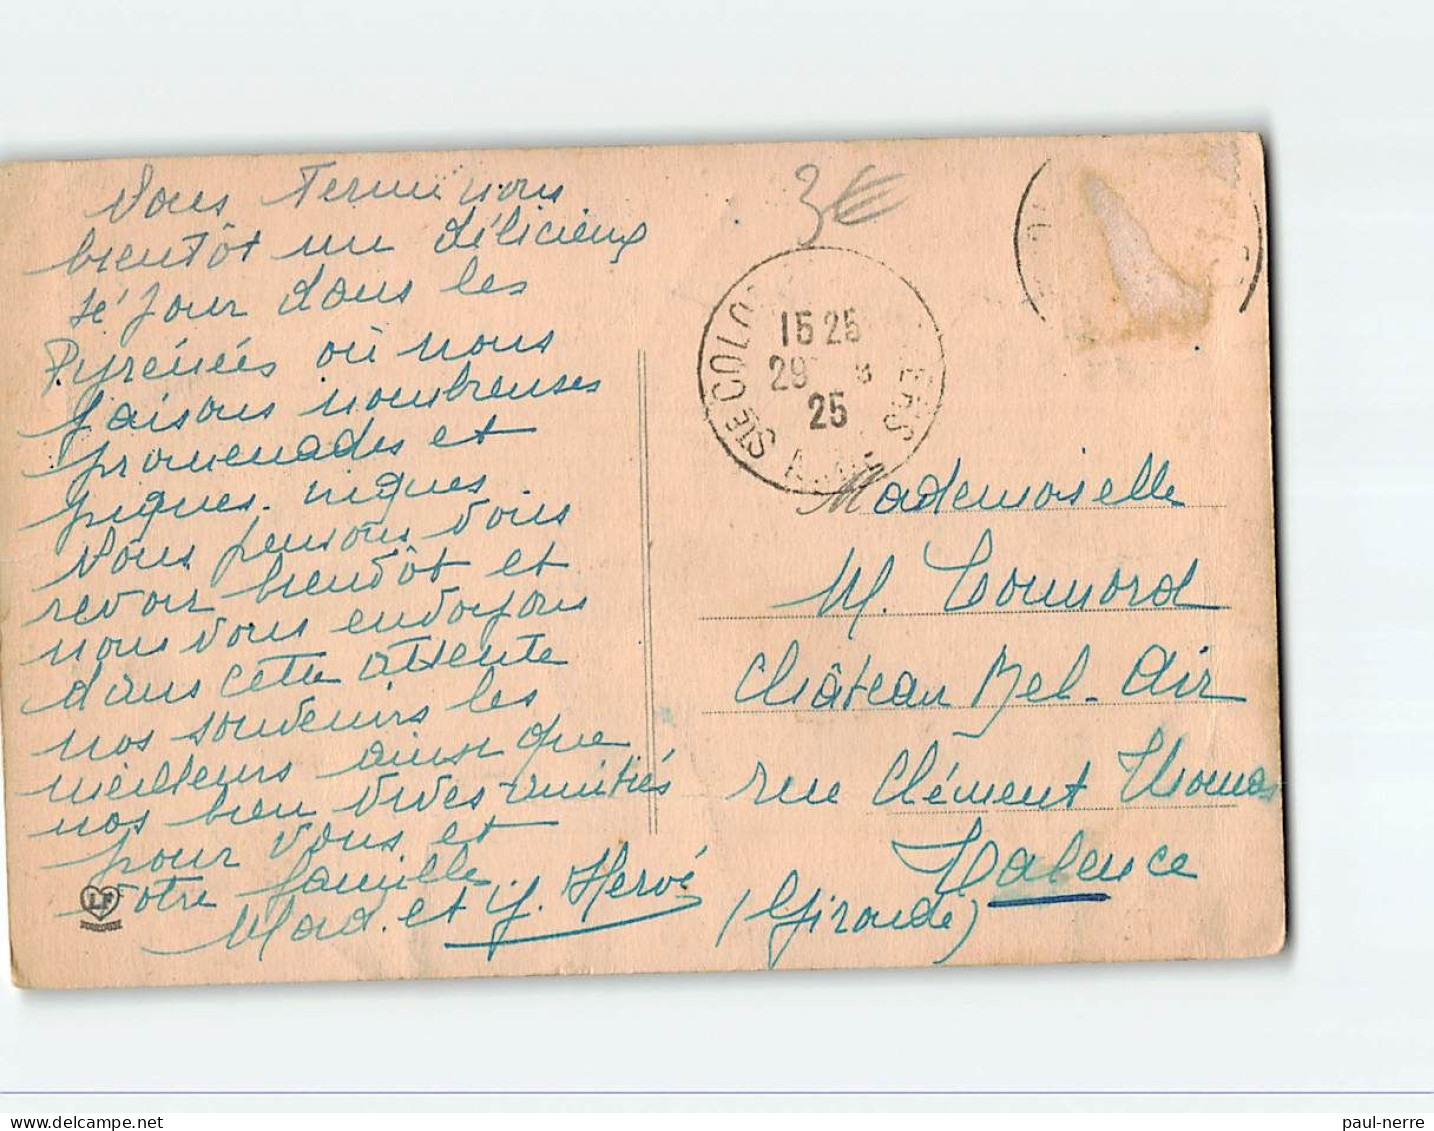 Nous terminons
bientôt un délicieux
séjour dans les
Pyrénées où nous
faisons nombreuses
promenades et
piques-niques.
Nous pensons vous
revoir bientôt et
nous vous envoyons
dans cette attente
nos souvenirs les
meilleurs ainsi que
nos bien vives amitiés
pour vous et
votre famille
Mad. et y. Hervé
LF
3€
15 25
29 8
25
STE COLO
Mademoiselle
M.
Château Bel-Air
rue Clément Thomas
Valence
(Gironde)
paul-nerre